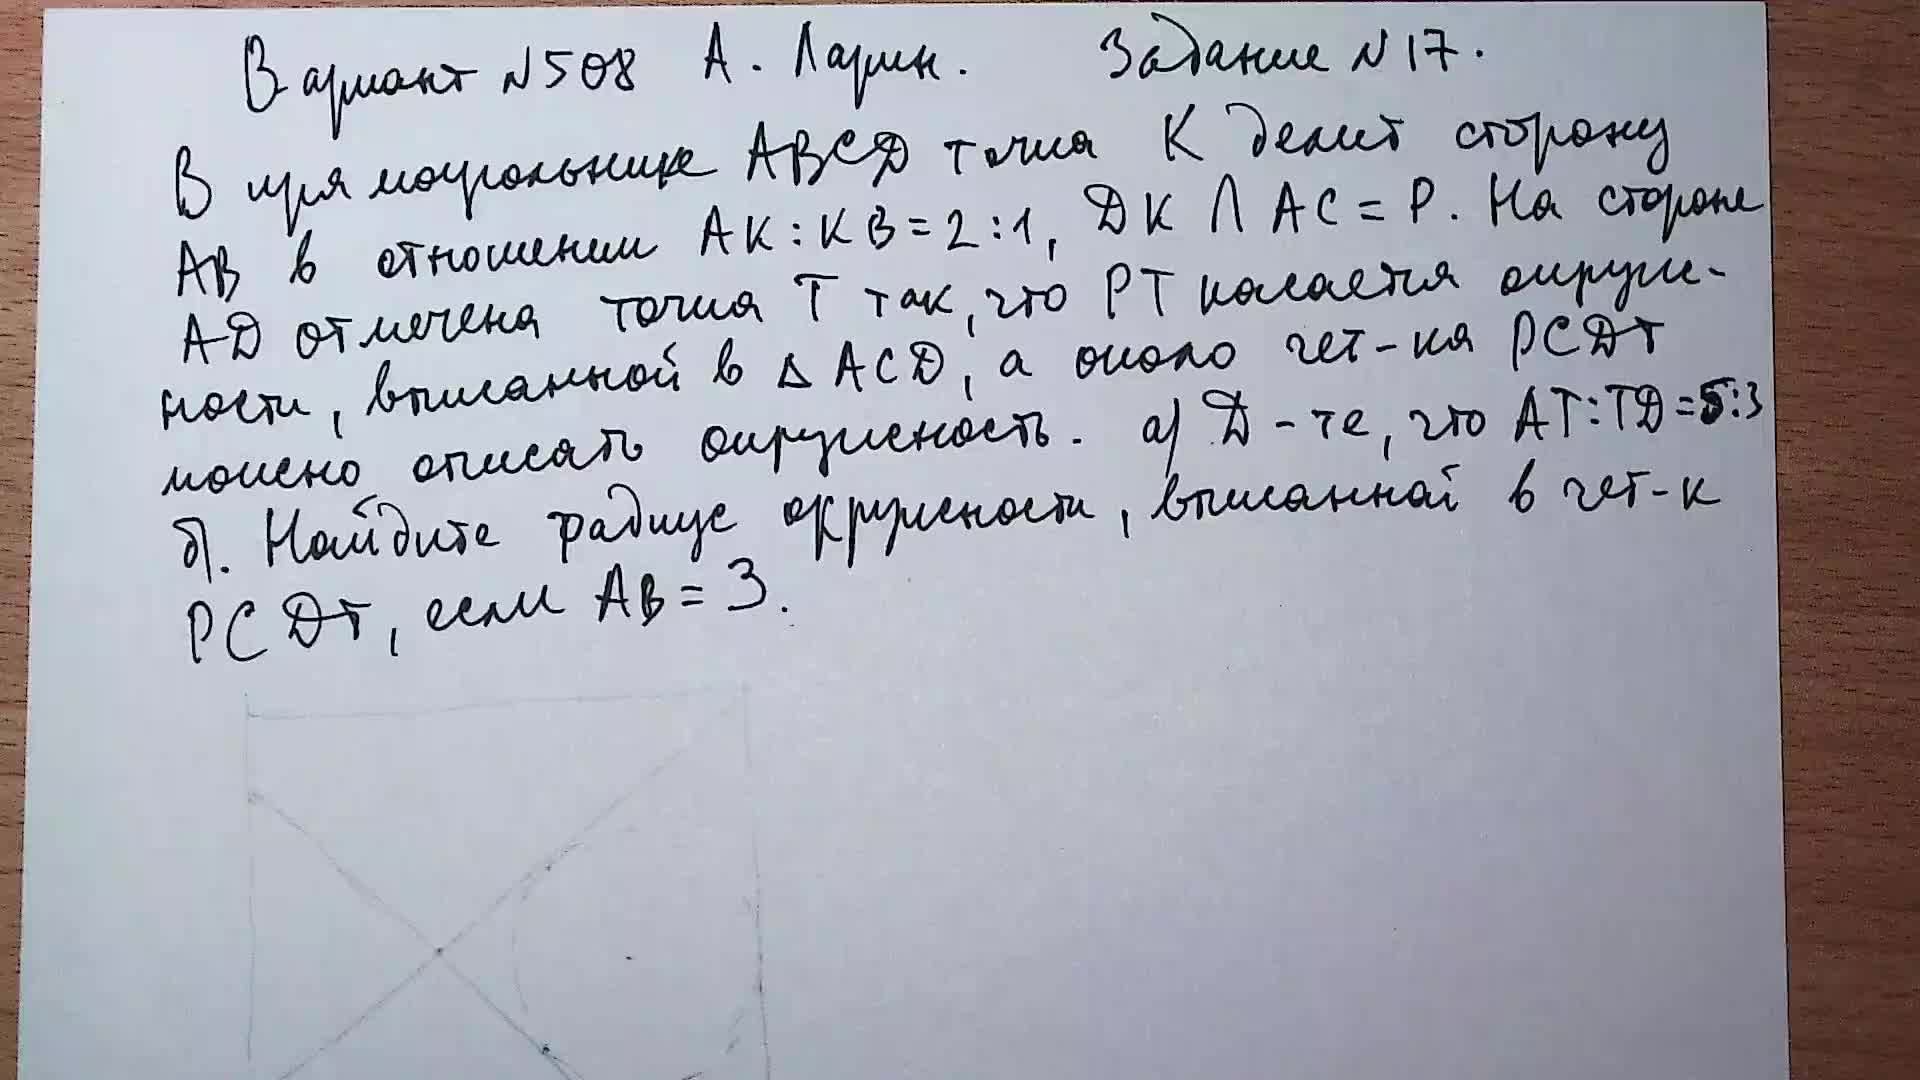 Вариант №508 А. Ларин. Задание №17.
В прямоугольнике ABCD точка K делит сторону
AB в отношении AK:KB=2:1, DK ∩ AC = P. На стороне
AD отмечена точка T так, что PT касается окруж-
ности, вписанной в △ ACD, а около чет-ка PCDT
можно описать окружность. а) Д-те, что AT:TD=5:3
б). Найдите радиус окружности, вписанной в чет-к
PCDT, если AB = 3.